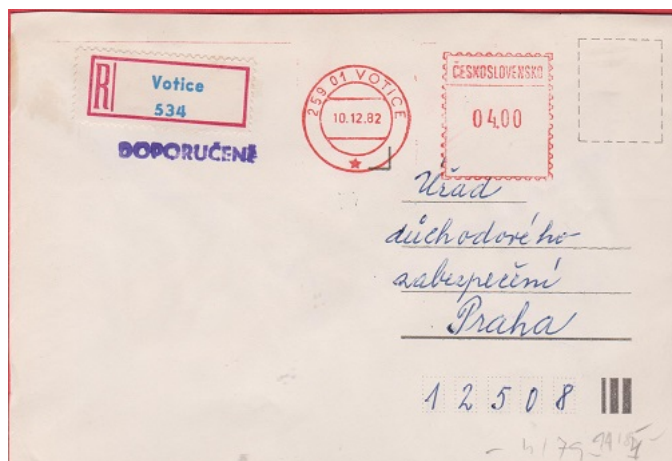 R
Votice
534
DOPORUČENĚ
259 01 VOTICE
10.12.82
ČESKOSLOVENSKO
04.00
Úřad
důchodového
zabezpečení
Praha
12508